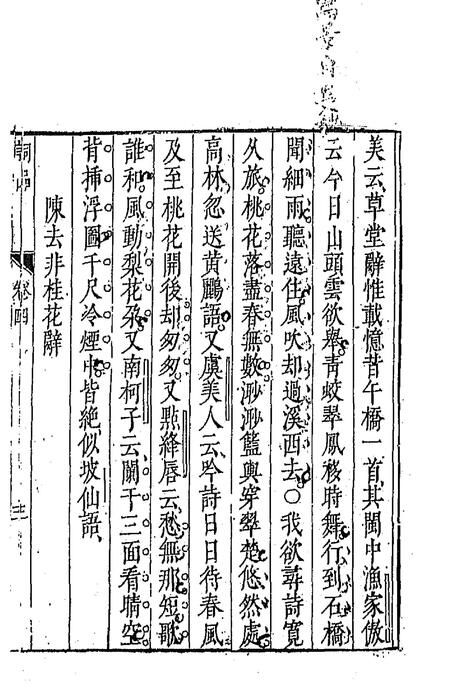 美云草堂辭惟載憶昔午橋一首其閩中漁家傲
云今日山頭雲欲舉青蛟翠鳳移時舞行到石橋
聞細雨聽還住風吹却過溪西去○我欲尋詩寬
久旅桃花落盡春無數渺渺籃輿穿翠楚悠然處
高林忽送黃鸝語又虞美人云吟詩日日待春風
及至桃花開後却匆匆又點絳唇云愁無那短歌
誰和風動梨花朶又南柯子云闌干三面看晴空
背插浮圖千尺冷煙中皆絶似坡仙語
陳去非桂花辭
詞品
卷四